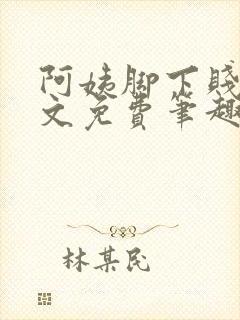 阿姨脚下贱
文免费笔趣
林某民